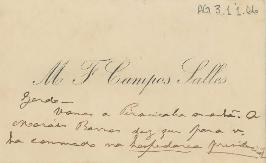 AG 3.1 1.66
M F Campos Salles
Vamos a Piracicaba amanhã. O
Moraes Barros diz que para v.
ha commodo na hospedaria